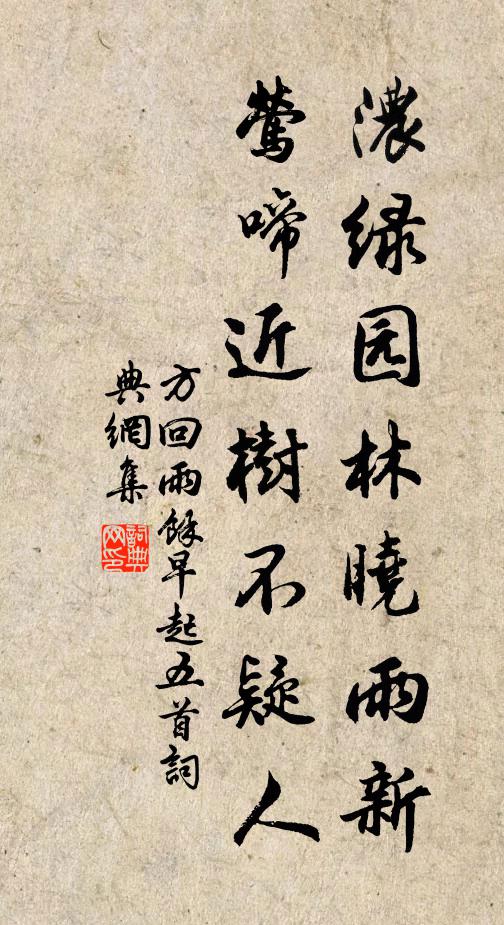 濃緑园林曉雨新
鶯啼近樹不疑人
方回雨餘早起五首詞
典網集
詞典网印